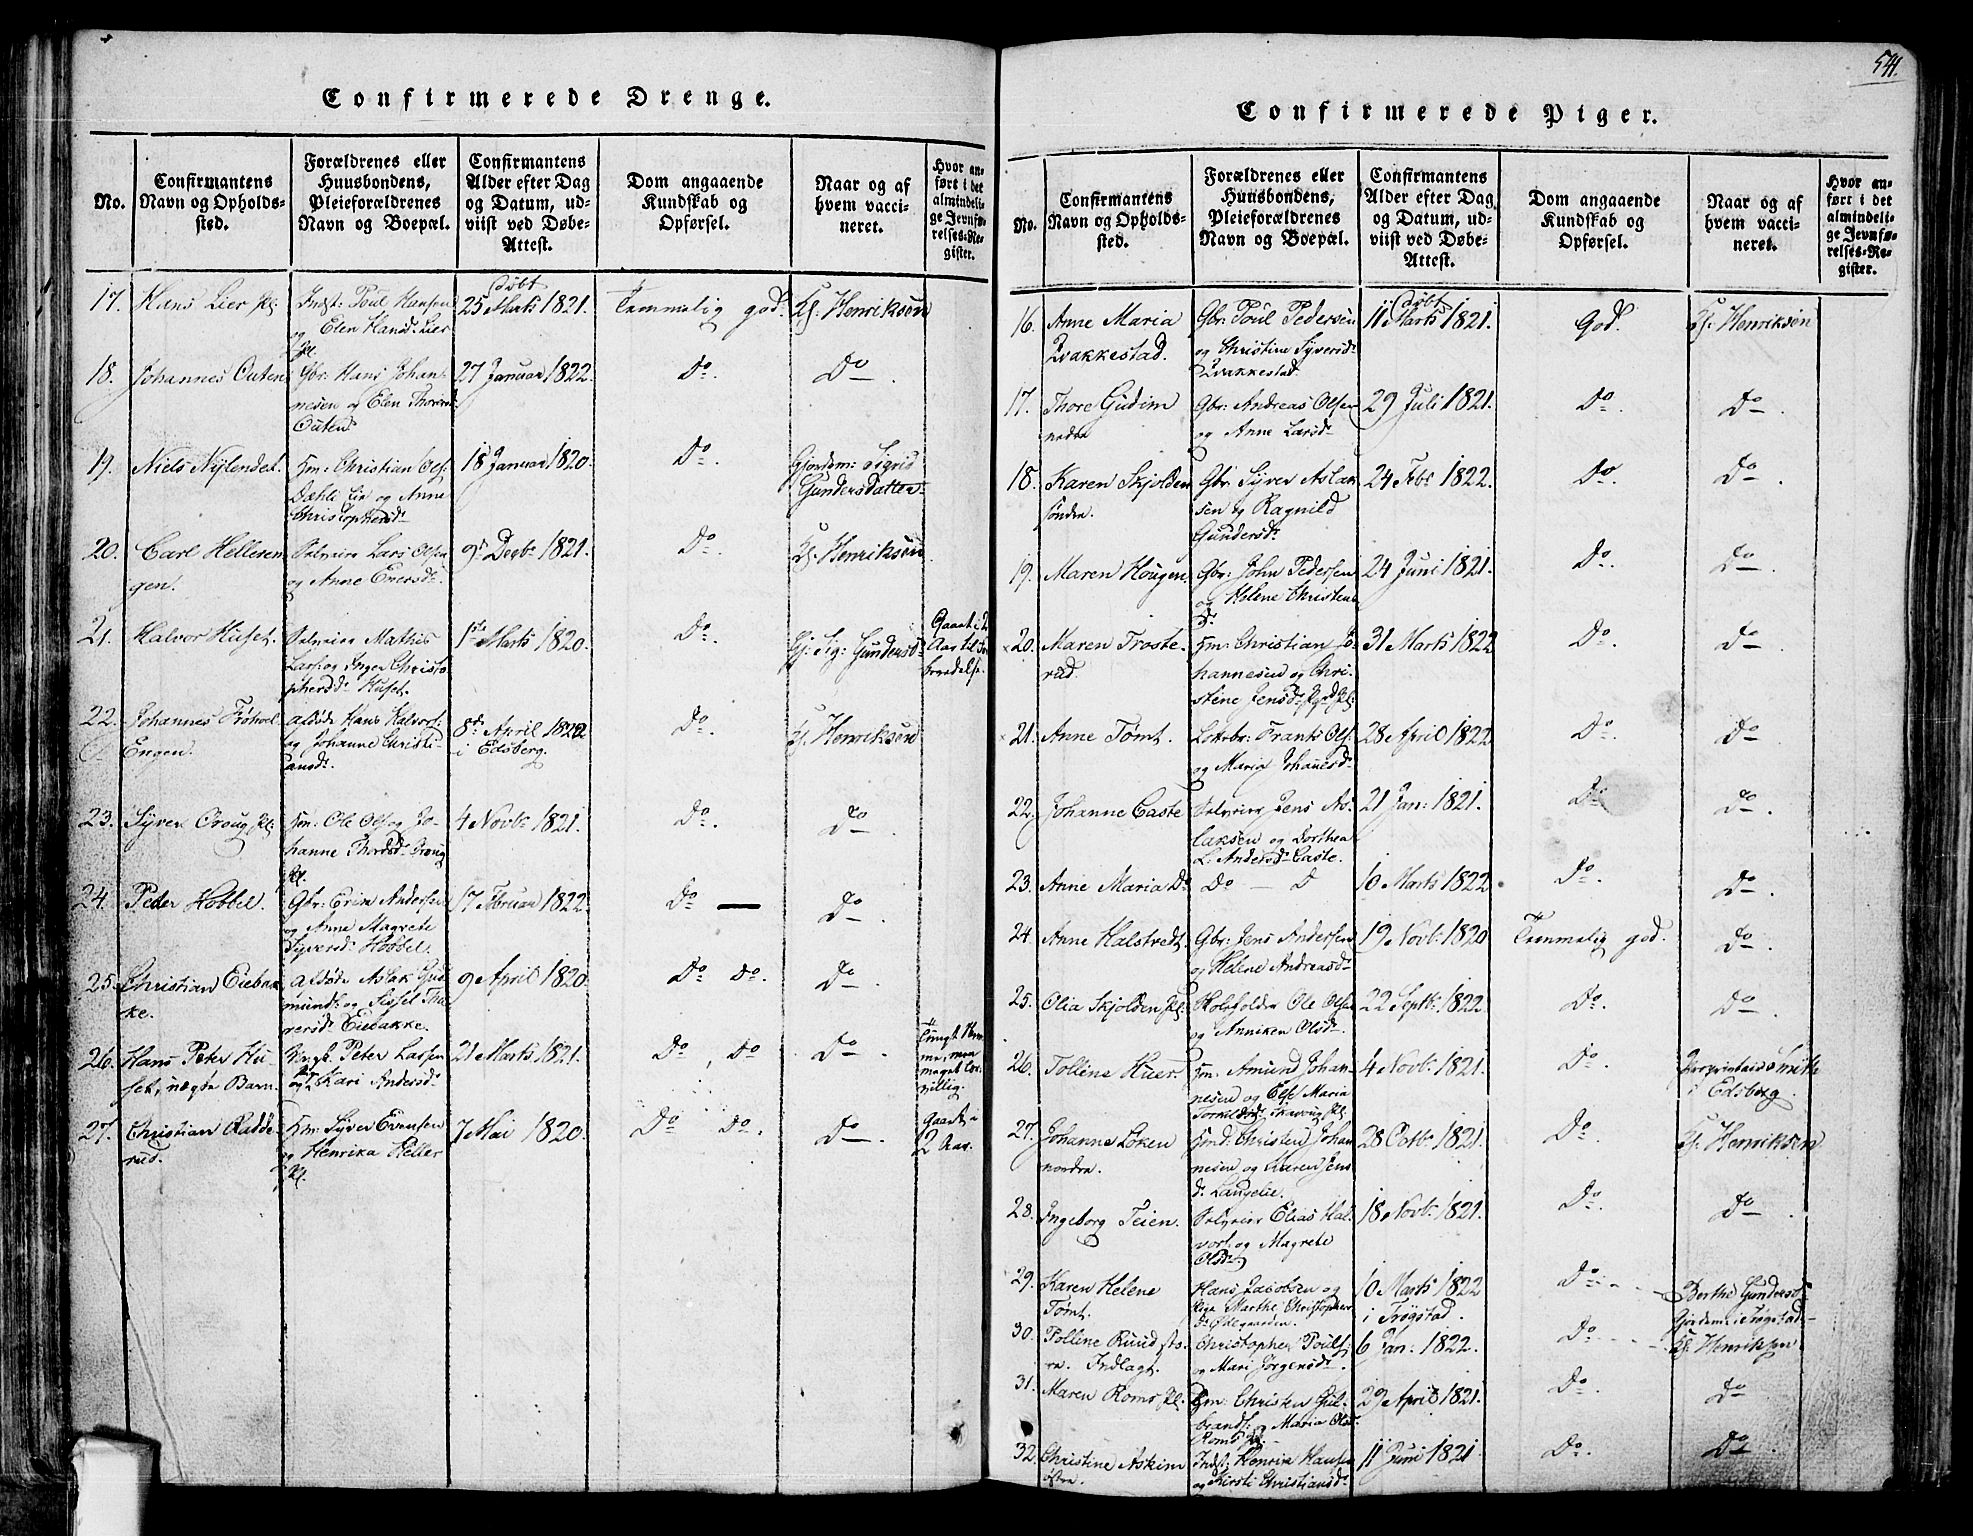 541.
Confirmerede Drenge.
No.
Confirmantens
Navn og Opholds-
sted.
Forældrenes eller
Huusbondens,
Pleieforældrenes
Navn og Boepæl.
Confirmantens
Alder efter Dag
og Datum, ud-
viist ved Døbe-
Attest.
Dom angaaende
Kundskab og
Opførsel.
Naar og af
hvem vacci-
neret.
Hvor an-
ført i det
almindeli-
ge Jevnfø-
relses-Re-
gister.
17. Hans Lier pl:
Indst: Poul Hansen
og Elen Hansd: Lier
pl.
døbt
25 Marts 1821.
Temmelig god.
Kl: Henriksøn
18. Johannes Outen
Gbr: Hans Johan-
nesen og Elen
Outen
27 Januar 1822.
Do.
Do.
19. Niels Nylendet.
Hm: Christian Ols:
Dæhli Eie og Anne
Christophersd:
18 Januar 1820.
Do.
Gjordem: Sigrid
Gundersdatter
20. Carl Helleren-
gen.
Selveier Lars Olsen
og Anne Enersd:
9d Decbr 1821.
Do.
Kl: Henriksøn
21. Halvor Huset.
Selveier Mathis
Lars: og Inger Christo
phersd: Huset.
1ste Marts 1820.
Do.
Gj: Sig: Gundersd
Gaaet i 2
Aar til
22. Johannes Frøhol
Engen.
afdøde Hans Halvors:
og Johanne Christi-
ansd:
8de April 1822
i Edsberg.
Do.
Kl: Henriksøn
23. Syver Oroug pl:
Hm: Ole Ols: og Jo-
hanne Thordsd: Oroug
pl.
4 Novbr 1821.
Do.
Do.
24. Peter Hobbel.
Gbr: Even Andersen
og Anne Magrete
Syversd: Hobbel.
17 Februar 1822.
Do. —
Do.
25. Christian Eiebak-
ke.
afdøde Aslak Gud
munds: og Sissel Thu
resd: Eiebakke.
9 April 1820.
Do. Do.
Do.
26. Hans Peter Hu-
set, uægte Barn.
Ungk. Peter Larsen
og Kari Andersd:
21 Marts 1821.
Do. Do.
Do.
Tungt Nem
me, men
meget
villig.
27. Christian Radde-
rud.
Hm: Syver Evensen
og Henrika Heller
pl.
7 Mai 1820.
Do. Do.
Do.
Gaaet i
2 Aar.
Confirmerede Piger.
No.
Confirmantens
Navn og Opholds-
sted.
Forældrenes eller
Huusbondens,
Pleieforældrenes
Navn og Boepæl.
Confirmantens
Alder efter Dag
og Datum, ud-
viist ved Døbe-
Attest.
Dom angaaende
Kundskab og
Opførsel.
Naar og af
hvem vacci-
neret.
Hvor an-
ført i det
almindeli-
ge Jevnfø-
relses-Re-
gister.
16. Anne Maria
Qvakkestad.
Gbr: Poul Pedersen
og Christine Syversd:
Qvakkestad.
døbt
11 Marts 1821.
God.
Kl: Henriksøn
17. Thore Gudim
nedre
Gbr: Andreas Olsen
og Anne Larsd:
29 Juli 1821.
Do.
Do.
18. Karen Skjolden
søndre.
Gbr: Syver Aslak
sen og Ragnild
Gundersd:
24 Febr 1822.
Do.
Do.
19. Maren Hougen
Gbr: John Pedersen
og Helene Christens
d:
24 Juni 1821.
Do.
Do.
20. Maren Troste-
rud.
Hm: Christian Jo-
hannesen og Chri-
stine Jensd:
31 Marts 1822
Do.
Do.
21. Anne Tømt.
Leilr: Frants Ols:
og Maria Johanesd:
28 April 1822
Do.
Do.
22. Johanne Caste
Selveier Jens As-
laksen og Dorthea
L. Andersd: Caste.
21 Jan: 1821.
Do.
Do.
23. Anne Maria Do
Do — D
10 Marts 1822
Do.
Do.
24. Anne Halstvedt.
Gbr: Jens Andersen
og Helene Andreasd:
19 Novbr 1820
Temmelig god.
Do.
25. Olia Skjolden pl:
Holsfolder Ole Olsen
og Anniken Olsd:
22 Septbr 1822.
Do.
Do.
26. Tolline Huer.
Hm. Amund Johan-
nesen og Else Maria
Torkildsd:
4 Novbr 1821.
Do.
Proprietaire Smith
i Edsberg.
27. Johanne Løken
nordre.
Hmd: Christen Johan
nesen og Maren Jens
d: Langelie.
28 Octbr 1821.
Do.
Kl: Henriksen
28. Ingeborg Teien.
Selveier Elias Hal-
vors: og Magrete
Olsd:
18 Novbr 1821.
Do.
Do.
29. Karen Helene
Tømt.
Hans Jacobsen og
Pige Marthe Christopher
d: Ødegaarden.
10 Marts 1822
i Trøgstad.
Do.
Berthe Gundersd
Gjordem: i Trøgstad
30. Tolline Ruud sto-
re. Indlagt.
Christopher Pouls:
og Mari Jørgensd:
6 Jan: 1822.
Do.
Kl: Henriksen
31. Maren Roms pl:
Hm: Christen Gul-
brands: og Maria Olsd
Roms pl.
29 April 1821.
Do.
Do
32. Christine Askim
østre.
Indst: Henrik Hansen
og Kirsti Christiansd:
11 Juni 1821
Do.
Do.